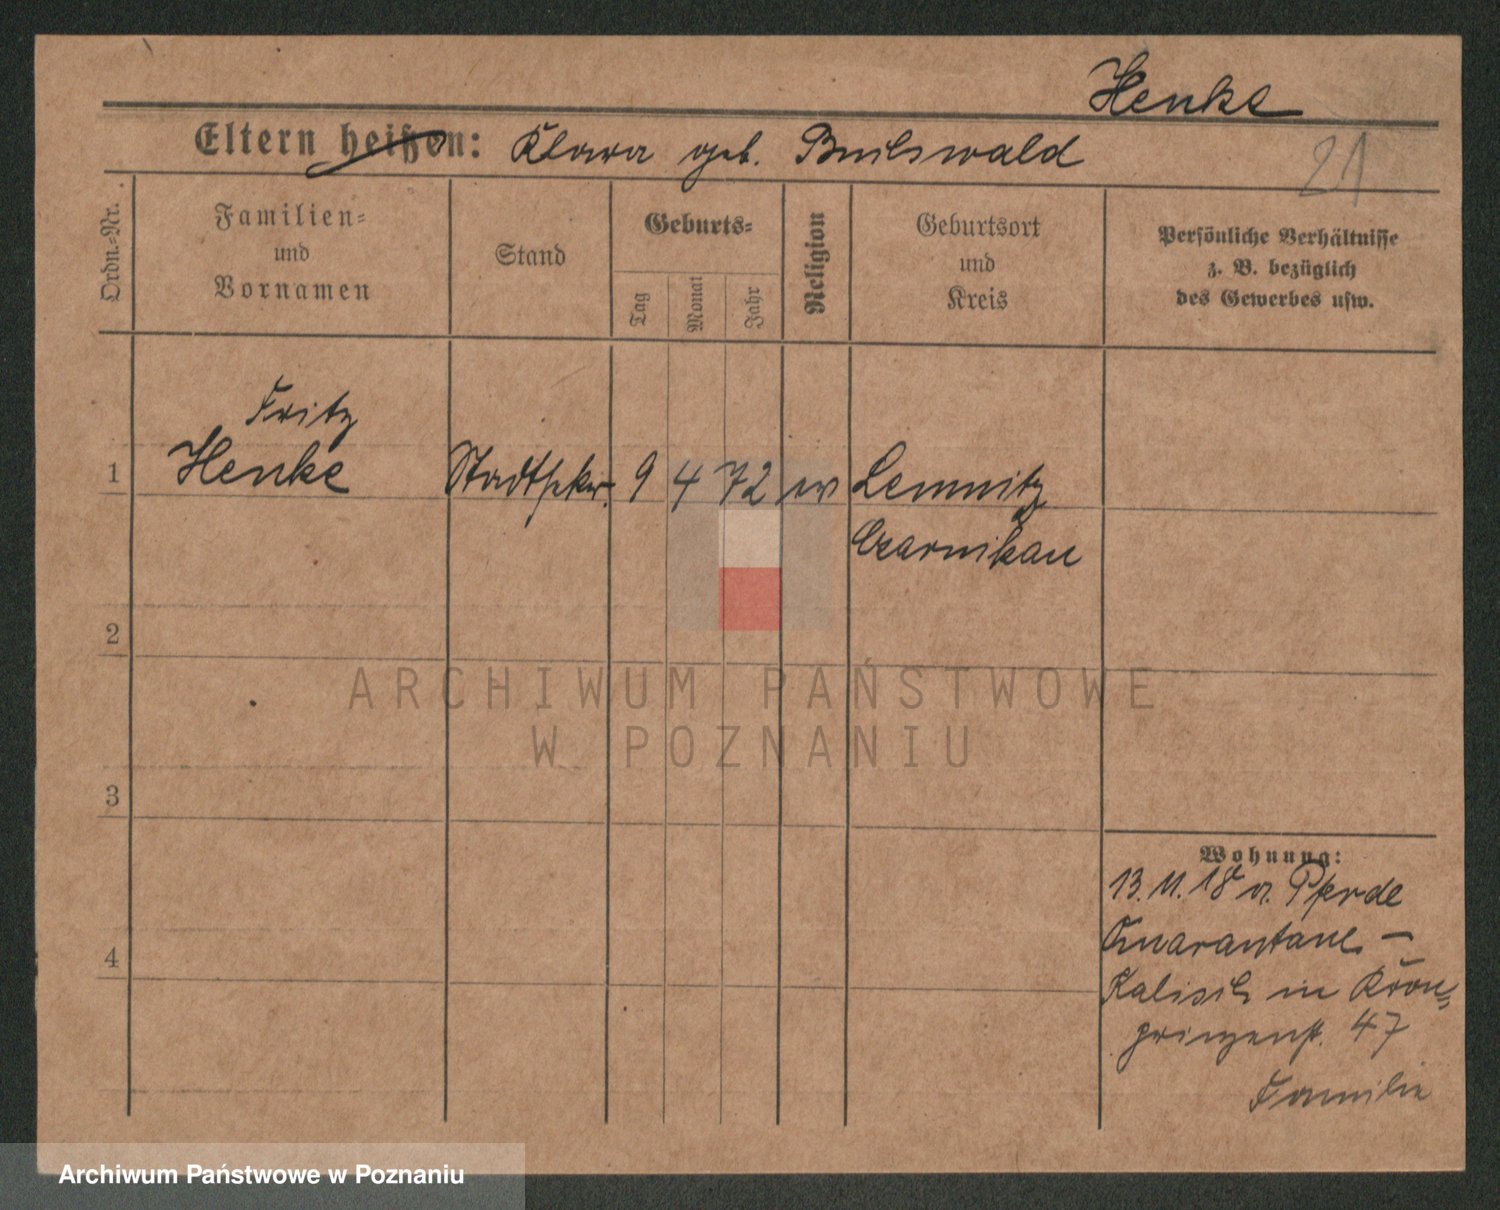 Henke
Eltern heißen: Klara geb.
21
Ordn.=Nr.
Familien=
und
Vornamen
Stand
Geburts=
Tag
Monat
Jahr
Religion
Geburtsort
und
Kreis
Persönliche Verhältnisse
z. B. bezüglich
des Gewerbes usw.
Fritz
1 Henke Stadtsekr. 9 4 72 ev Lemnitz
Czarnikau
2
3
4
Wohnung:
13. 11. 18 a. Pferde
Quarantäne –
Kalisch in Kron=
prinzenst. 47
Familie
ARCHIWUM PAŃSTWOWE
W POZNANIU
Archiwum Państwowe w Poznaniu